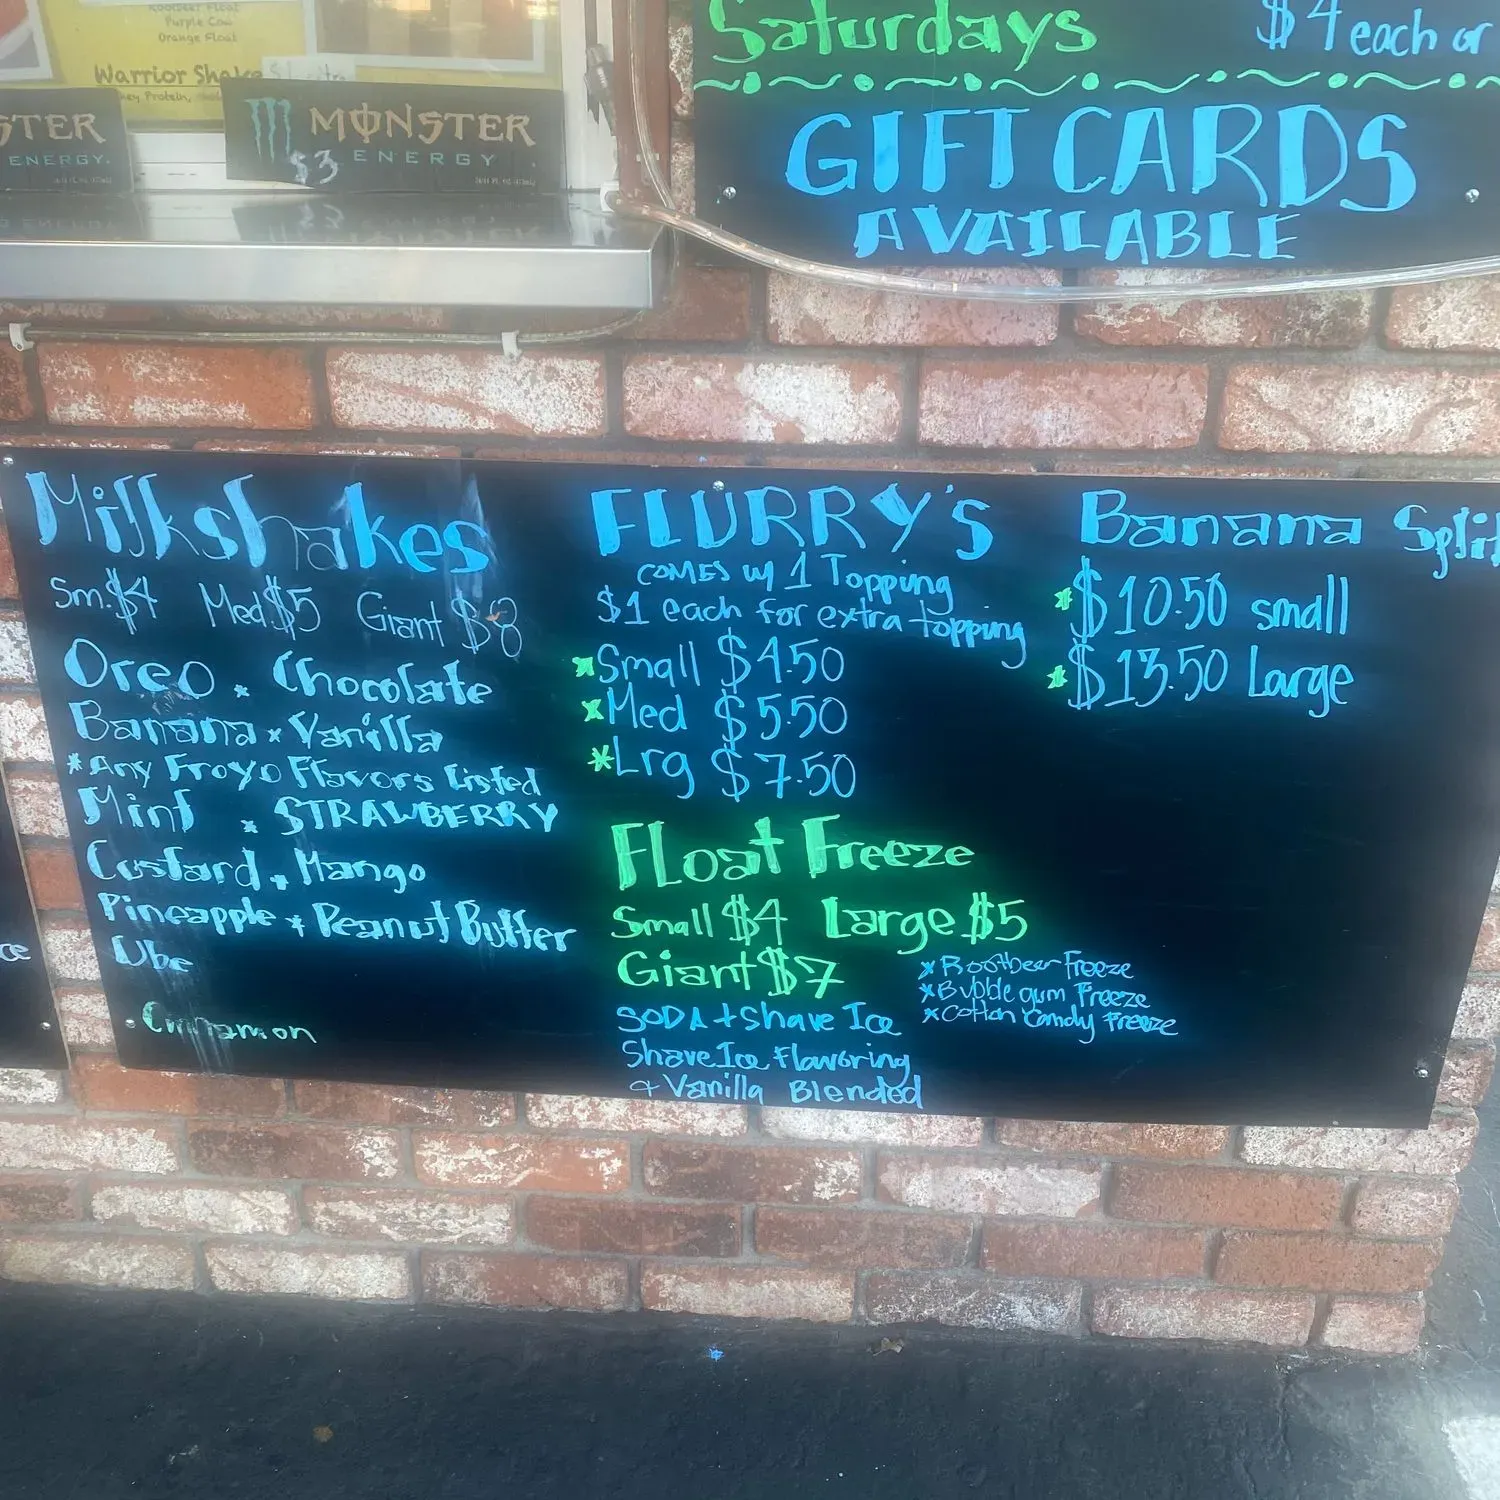 Rootbeer Float
Purple Cow
Orange Float
Warrior Shake
Protein,
STER
ENERGY.
MONSTER
$3 ENERGY
Saturdays $4 each or
GIFT CARDS
AVAILABLE
Milkshakes
Sm.$4 Med$5 Giant $8
Oreo x Chocolate
Banana x Vanilla
*Any Froyo Flavors Listed
Mint x STRAWBERRY
Custard x Mango
Pineapple x Peanut Butter
Ube
Cinnamon
FLURRY'S
COMES w/ 1 Topping
$1 each for extra topping
*Small $4.50
*Med $5.50
*Lrg $7.50
Float Freeze
Small $4 Large $5
Giant $7
SODA + Shave Ice
Shave Ice Flavoring
+ Vanilla Blended
x Rootbeer Freeze
x Bubble gum Freeze
x Cotton Candy Freeze
Banana Split
*$10.50 small
*$13.50 Large
ce